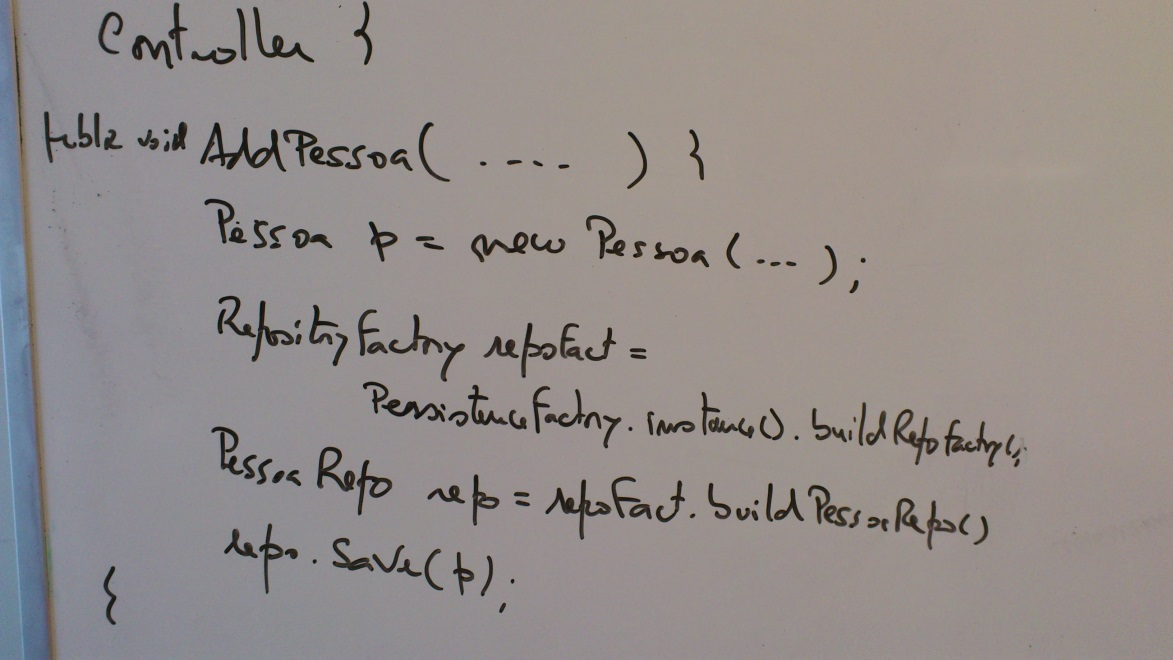 Controller }
public void AddPessoa( ..... ) }
Pessoa p = new Pessoa(...);
RepositoryFactory repoFact =
PersistenceFactory.instance().buildRepoFactory();
PessoaRepo repo = repoFact.buildPessoaRepo()
repo.Save(p);
{